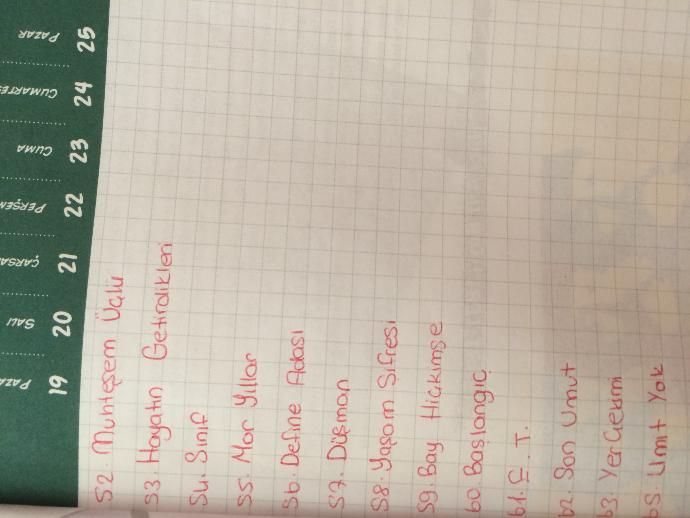 52. Muhteşem Üçlü
53. Hayatın Getirdikleri
54. Sınıf
55. Mor Yıllar
56. Define Adası
57. Düşman
58. Yaşam Şifresi
59. Bay Hiçkimse
60. Başlangıç
61. E.T.
62. Son Umut
63. YerÇekimi
65. Umit Yok
19 PAZA
20 SALI
21 ÇARŞA
22 PERŞEM
23 CUMA
24 CUMARTES
25 PAZAR